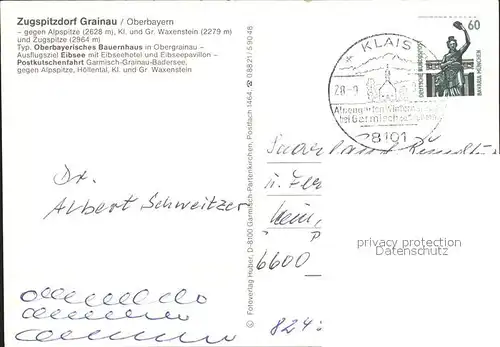 Zugspitzdorf Grainau / Oberbayern
– gegen Alpspitze (2628 m), Kl. und Gr. Waxenstein (2279 m)
und Zugspitze (2964 m)
Typ. Oberbayerisches Bauernhaus in Obergrainau –
Ausflugsziel Eibsee mit Eibseehotel und Eibseepavillon –
Postkutschenfahrt Garmisch-Grainau-Badersee,
gegen Alpspitze, Höllental, Kl. und Gr. Waxenstein
Dr.
Albert Schweitzer
© Fotoverlag Huber, D-8100 Garmisch-Partenkirchen, Postfach 1464, ☎ 08821/59048
KLAIS
28-9
bei Garmisch
8101
60
DEUTSCHE BUNDESPOST
BAVARIA MÜNCHEN
Saarland
u.
6600
privacy protection
Datenschutz
824